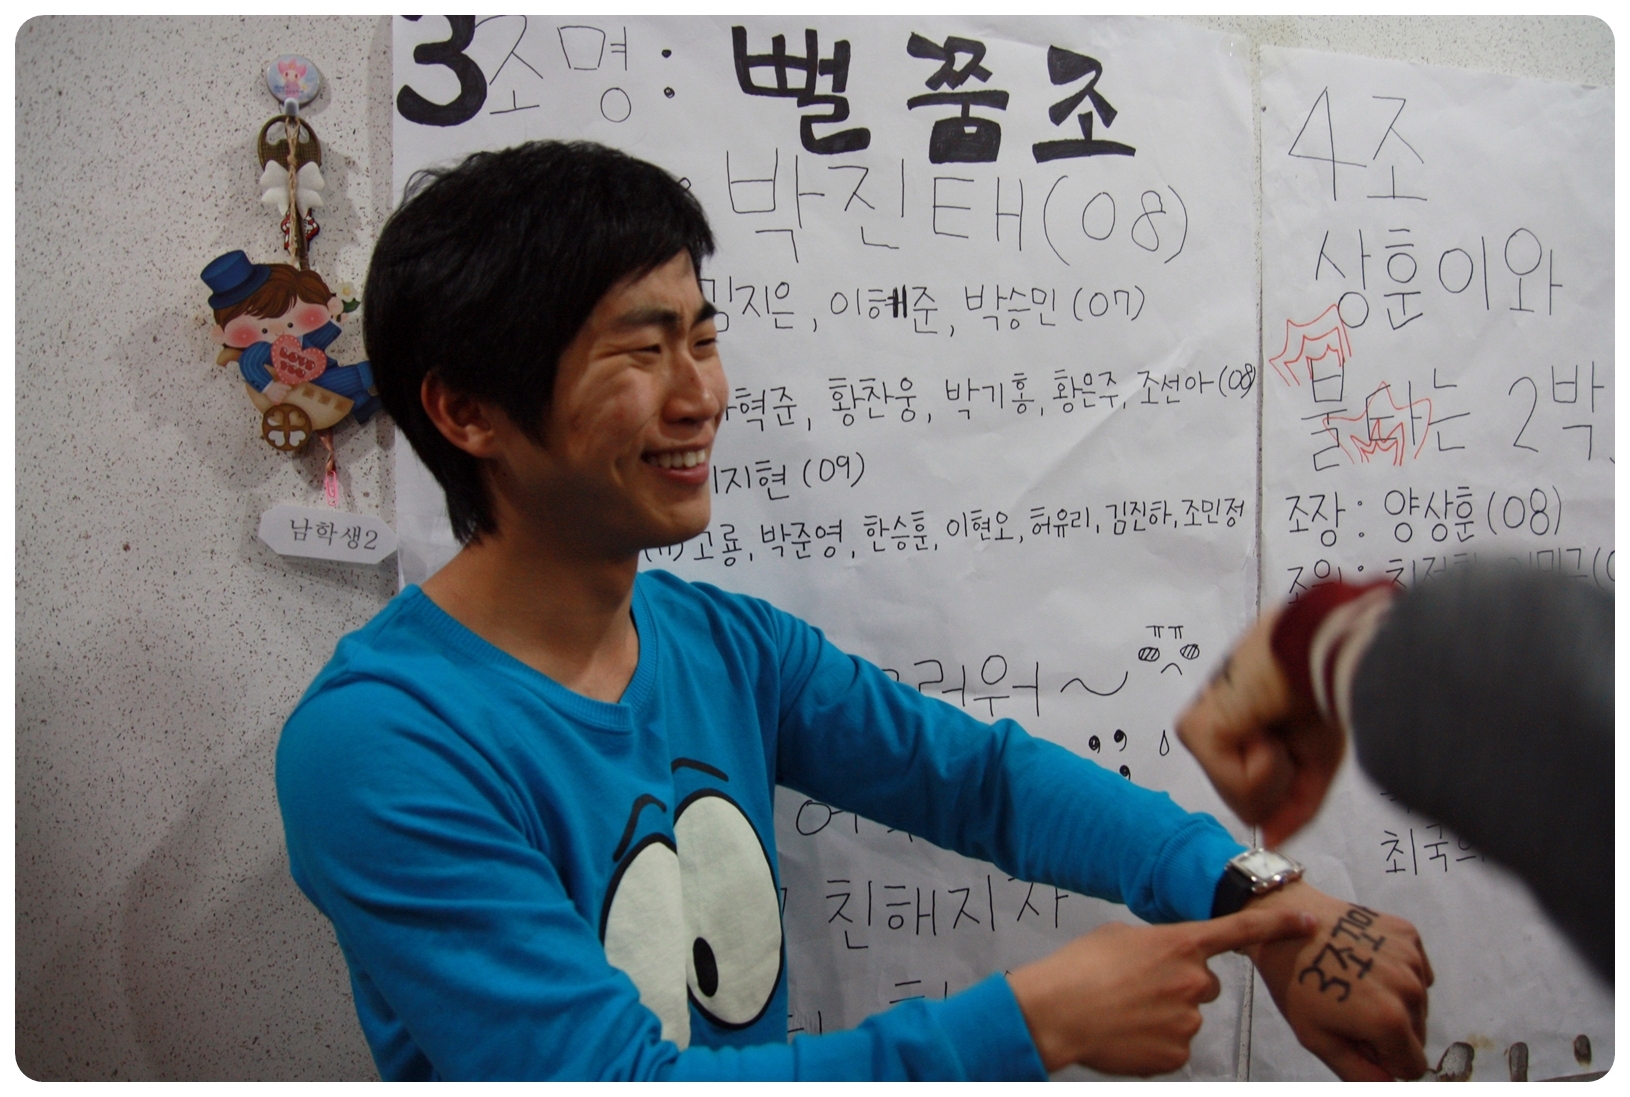 3조명: 뻘꿈조
박진태(08)
김지은, 이혜준, 박승민 (07)
혁준, 황찬웅, 박기홍, 황은주, 조선아 (08)
지현 (09)
고룡, 박준영, 한승훈, 이현오, 허유리, 김진하, 조민정
러워~ ㅠㅠ
친해지자
4조
상훈이와
불타는 2박
조장: 양상훈(08)
조원:
최국
LOVE YOU
남학생2
3조